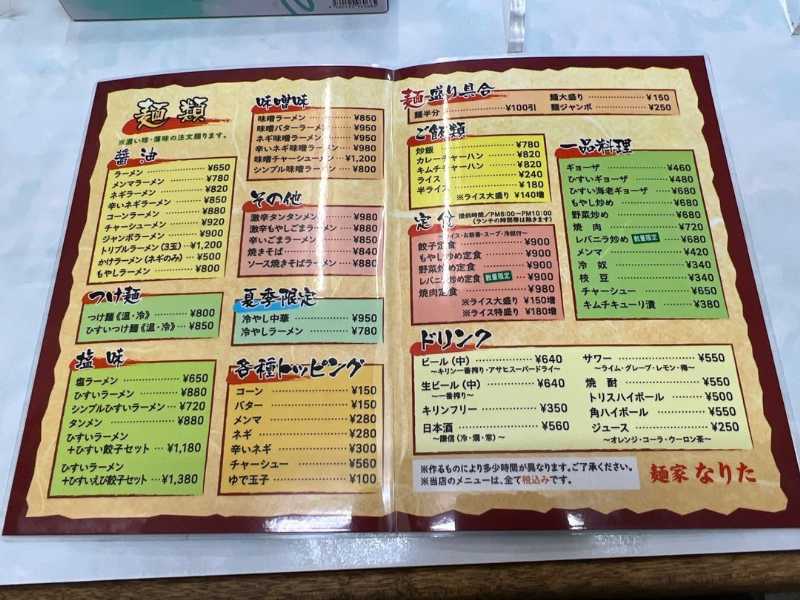 麺類
※濃い味・薄味の注文賜ります。
醤油
ラーメン ¥650
メンマラーメン ¥780
ネギラーメン ¥820
辛いネギラーメン ¥850
コーンラーメン ¥880
チャーシューメン ¥920
ジャンボラーメン ¥900
トリプルラーメン(3玉) ¥1,200
かけラーメン(ネギのみ) ¥500
もやしラーメン ¥800
つけ麺
つけ麺《温・冷》 ¥800
ひすいつけ麺《温・冷》 ¥850
塩味
塩ラーメン ¥650
ひすいラーメン ¥880
シンプルひすいラーメン ¥720
タンメン ¥880
ひすいラーメン
+ひすい餃子セット ¥1,180
ひすいラーメン
+ひすいえび餃子セット ¥1,380
味噌味
味噌ラーメン ¥850
味噌バターラーメン ¥950
ネギ味噌ラーメン ¥950
辛いネギ味噌ラーメン ¥980
味噌チャーシューメン ¥1,200
シンプル味噌ラーメン ¥650
その他
激辛タンタンメン ¥980
激辛もやしごまラーメン ¥980
辛いごまラーメン ¥850
焼きそば ¥840
ソース焼きそばラーメン ¥880
夏季限定
冷やし中華 ¥950
冷やしラーメン ¥780
各種トッピング
コーン ¥150
バター ¥150
メンマ ¥280
ネギ ¥280
辛いネギ ¥300
チャーシュー ¥560
ゆで玉子 ¥100
麺盛り具合
麺半分 ¥100引
麺大盛り ¥150
麺ジャンボ ¥250
ご飯類
炒飯 ¥780
カレーチャーハン ¥820
キムチチャーハン ¥820
ライス ¥240
半ライス ¥180
※ライス大盛り ¥140増
定食
提供時間/PM6:00〜PM10:00
(ランチの時間帯は除きます)
餃子定食 ¥900
もやし炒め定食 ¥900
野菜炒め定食 ¥900
レバニラ炒め定食 数量限定 ¥900
焼肉定食 ¥980
※ライス大盛り ¥150増
※ライス特盛り ¥180増
一品料理
ギョーザ ¥460
ひすいギョーザ ¥480
ひすい海老ギョーザ ¥680
もやし炒め ¥680
野菜炒め ¥680
焼肉 ¥720
レバニラ炒め 数量限定 ¥680
メンマ ¥420
冷奴 ¥340
枝豆 ¥340
チャーシュー ¥650
キムチキューリ漬 ¥380
ドリンク
ビール(中) ¥640
〜キリン一番搾り・アサヒスーパードライ〜
生ビール(中) ¥640
〜一番搾り〜
キリンフリー ¥350
日本酒 ¥560
〜謙信(冷・燗・常)〜
サワー ¥550
〜ライム・グレープ・レモン・梅〜
焼酎 ¥550
トリスハイボール ¥500
角ハイボール ¥550
ジュース ¥250
〜オレンジ・コーラ・ウーロン茶〜
※作るものにより多少時間が異なります。ご了承ください。
※当店のメニューは、全て税込みです。
麺家 なりた